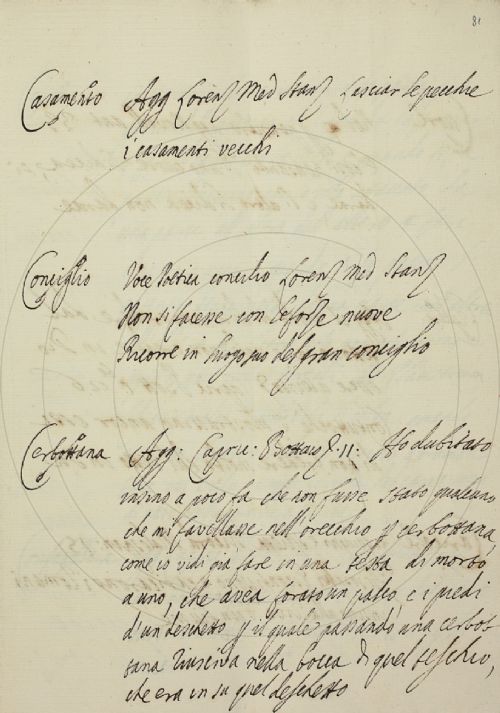 81
Casamento Agg Lorenz Med Stanz Lasciar le pecchie
i casamenti vecchi
Conciglio Voce Poetica concilio Lorenz Med Stanz
Non si facesse con le forze nuove
Ricorre in luogo suo del gran conciglio
Cerbottana Agg: Capric: Bottaio 11: Ho dubitato
insino a poco fa che non fusse stato qualcuno
che mi favellasse nell'orecchio p cerbottana,
come io vidi già fare in una testa di morto
a uno, che avea forato un palco e i piedi
d'un deschetto p il quale passando una cerbot
tana riusciva nella bocca di quel teschio,
che era in su quel deschetto